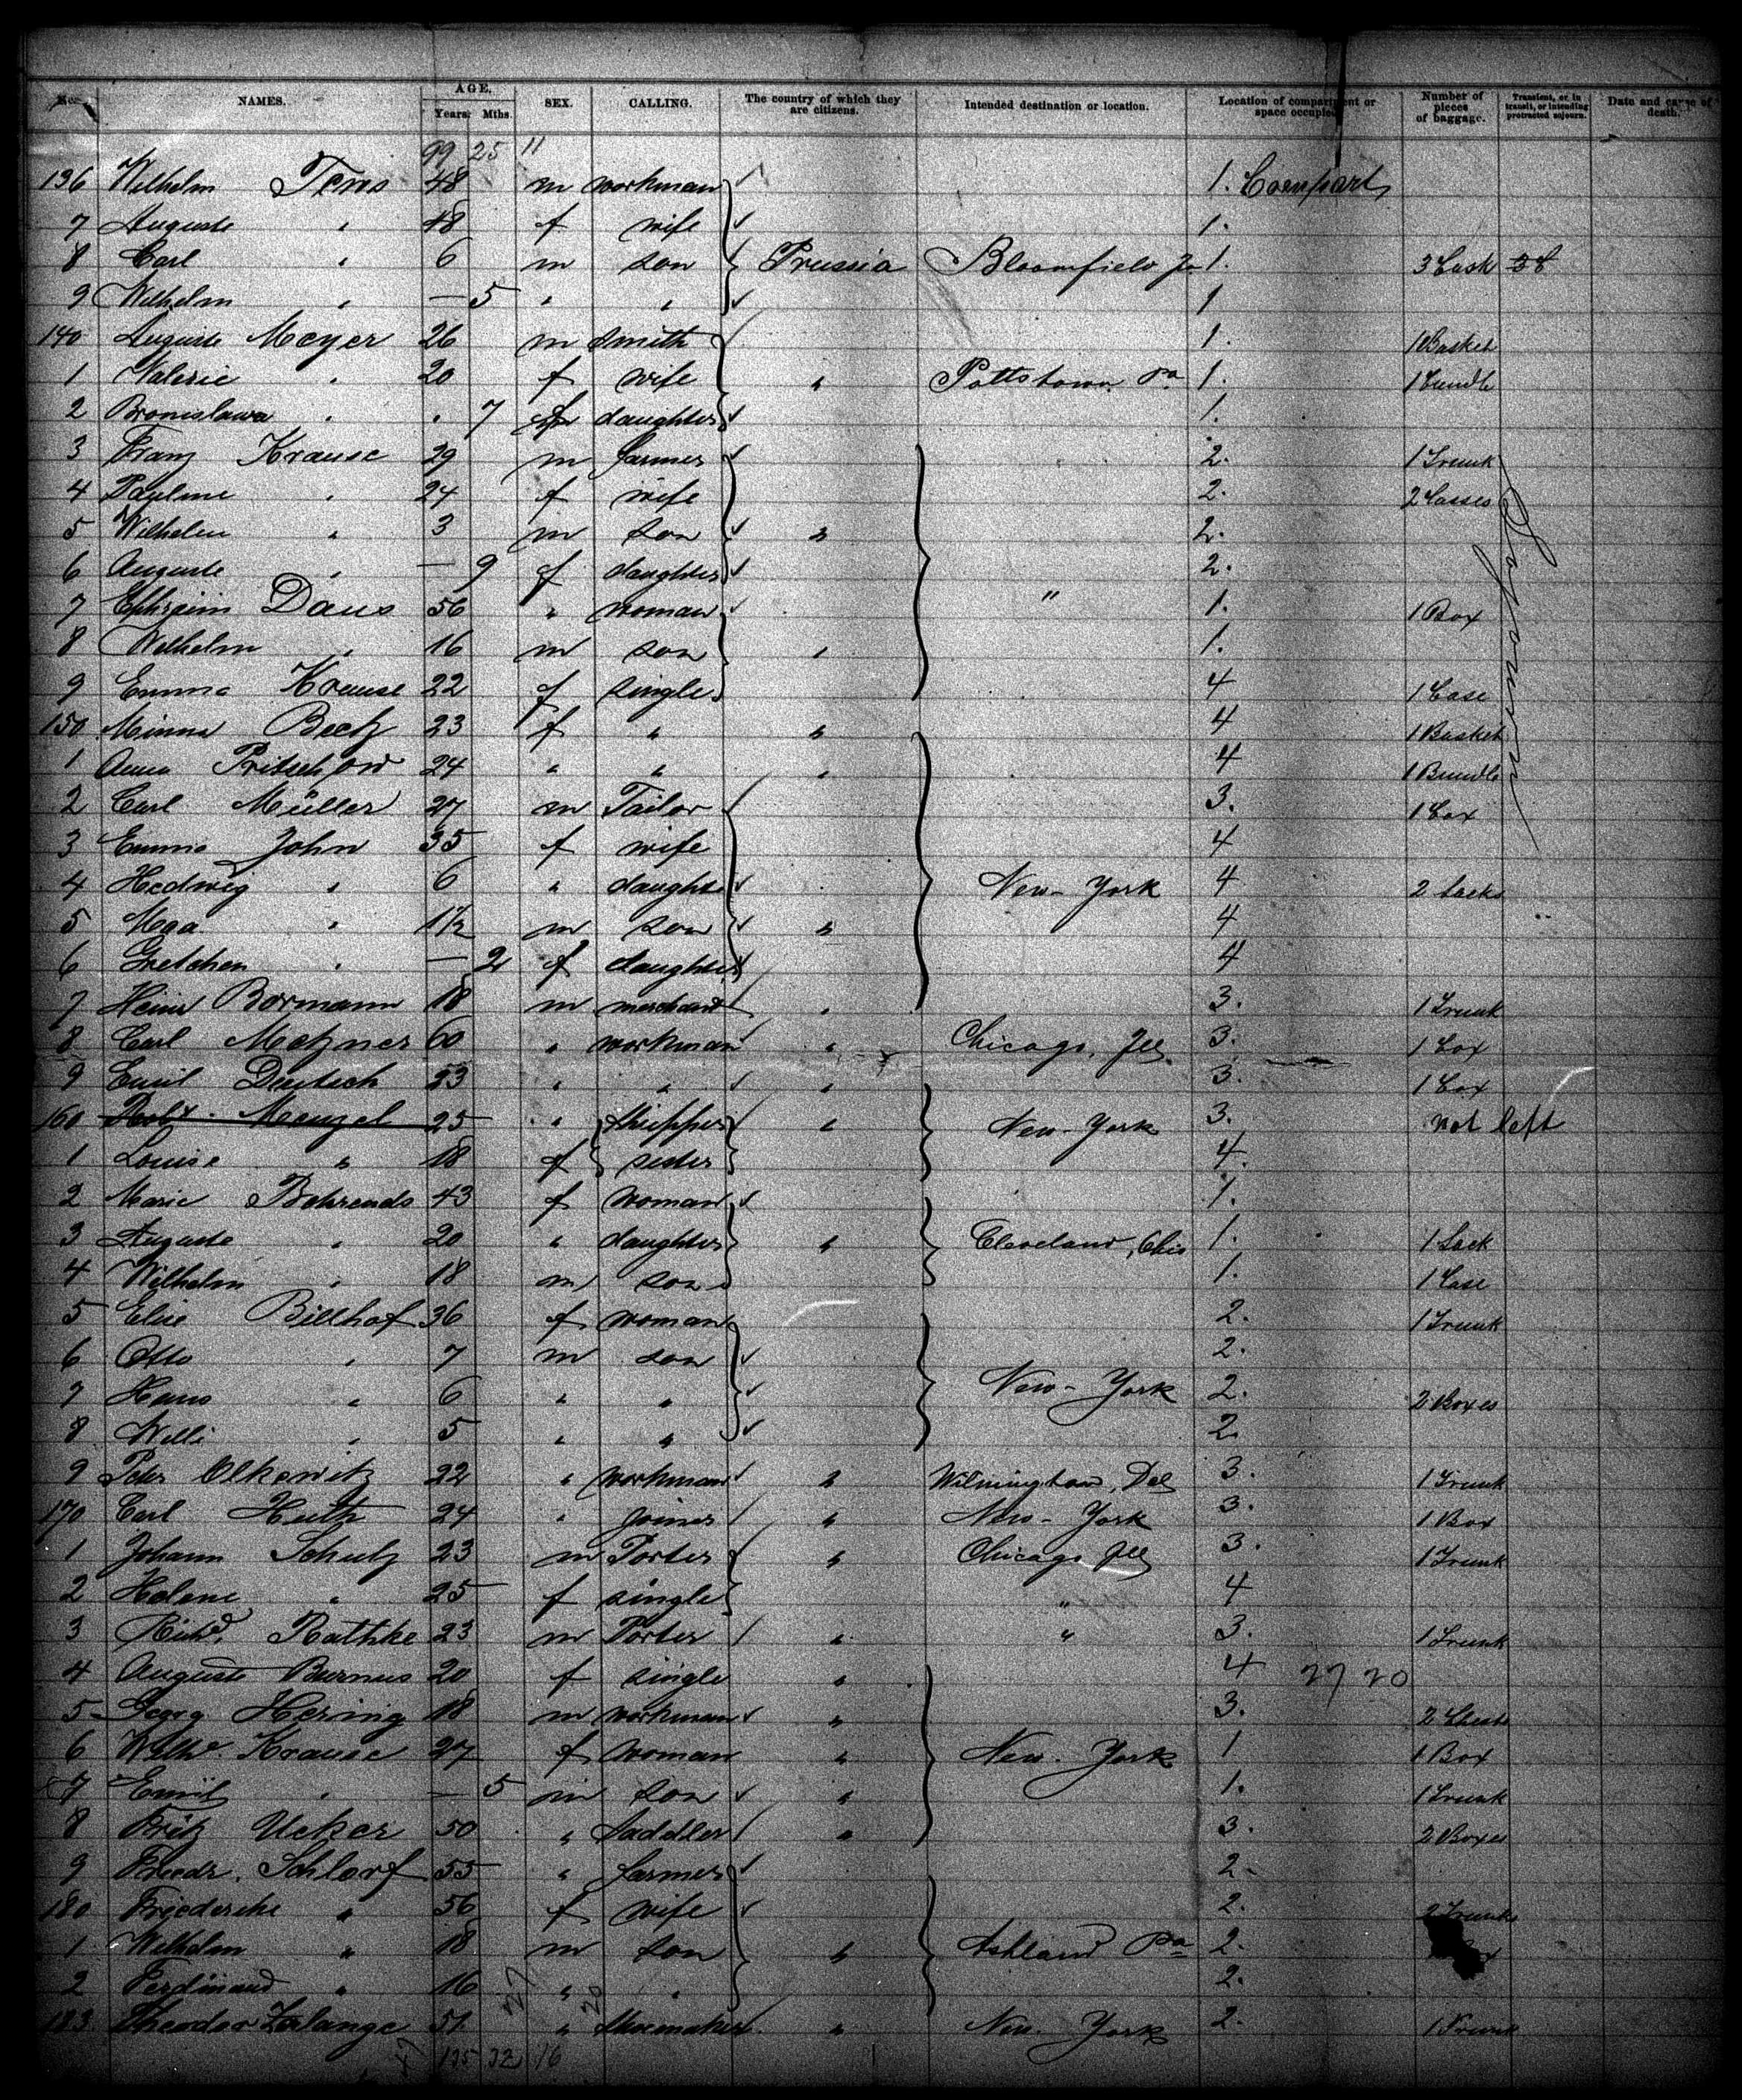 No. NAMES. AGE. Years. Mths. SEX. CALLING. The country of which they are citizens. Intended destination or location. Location of compartment or space occupied. Number of pieces of baggage. Transient, or in transit, or intending protracted sojourn. Date and cause of death.
99 25 11
136 Wilhelm 48 m workman 1. Compart
7 Auguste " 48 f wife 1.
8 Carl " 6 m son Prussia Bloomfield 1. 3 Cask
9 Wilhelm " — 5 " " 1
140 Auguste Meyer 26 m smith 1. 1 Basket
1 Valerie " 20 f wife " Pottstown Pa 1. 1 Bundle
2 Bronislawa " . 7 f daughter 1.
3 Franz Krause 29 m farmer 2. 1 Trunk
4 Pauline " 24 f wife 2. 2 Casses
5 Wilhelm " 3 m son " 2.
6 Auguste " — 9 f daughter 2.
7 Ephraim Daus 56 " woman " 1. 1 Box
8 Wilhelm " 16 m son " 1.
9 Emma Krause 22 f single 4 1 Case
150 Minna 23 f " " 4 1 Basket
1 Anna Pritschow 24 " " " 4 1 Bundle
2 Carl Müller 27 m Tailor 3. 1 Box
3 Emma John 35 f wife 4
4 Hedwig " 6 " daughter New-York 4 2 Sacks
5 " 1½ m son " 4
6 Gretchen " — 2 f daughter 4
7 Bormann 18 m merchant " 3. 1 Trunk
8 Carl Metzner 60 " workman " Chicago, Ill. 3. 1 Box
9 Emil Deutsch 23 " " " 3. 1 Box
160 Menzel 25 " " New-York 3. not left
1 Louise " 18 f sister 4.
2 Marie Behrends 43 f woman 1.
3 Auguste " 20 " daughter " Cleveland, Ohio 1. 1 Sack
4 Wilhelm " 18 m son 1. 1 Case
5 Elise Billhof 36 f woman 2. 1 Trunk
6 Otto " 7 m son 2.
7 Hans " 6 " " New-York 2. 2 Boxes
8 Willi " 5 " " 2.
9 Peter Olkewitz 22 " workman " Wilmington, Del 3. 1 Trunk
170 Carl Huth 24 " joiner " New-York 3. 1 Box
1 Johann Schulz 23 m Porter " Chicago Ill 3. 1 Trunk
2 Helene " 25 f single " 4
3 Richd. Rathke 23 m Porter " " 3. 1 Trunk
4 Auguste Burnus 20 f single " 4 27 20
5 Georg Hering 18 m workman " 3. 2 Chests
6 Wilhe. Krause 27 f woman " New-York 1 1 Box
7 Emil " — 5 m son " 1. 1 Trunk
8 Fritz Ucker 50 " Saddler " 3. 2 Boxes
9 Friedr. Schlorf 55 " farmer 2.
180 Friederike " 56 f wife 2. 2 Trunks
1 Wilhelm " 18 m son " Ashland Pa 2.
2 Ferdinand " 16 " " 2.
183 Theodor 51 " Shoemaker " New-York 2. 1 Trunk
135 32 16